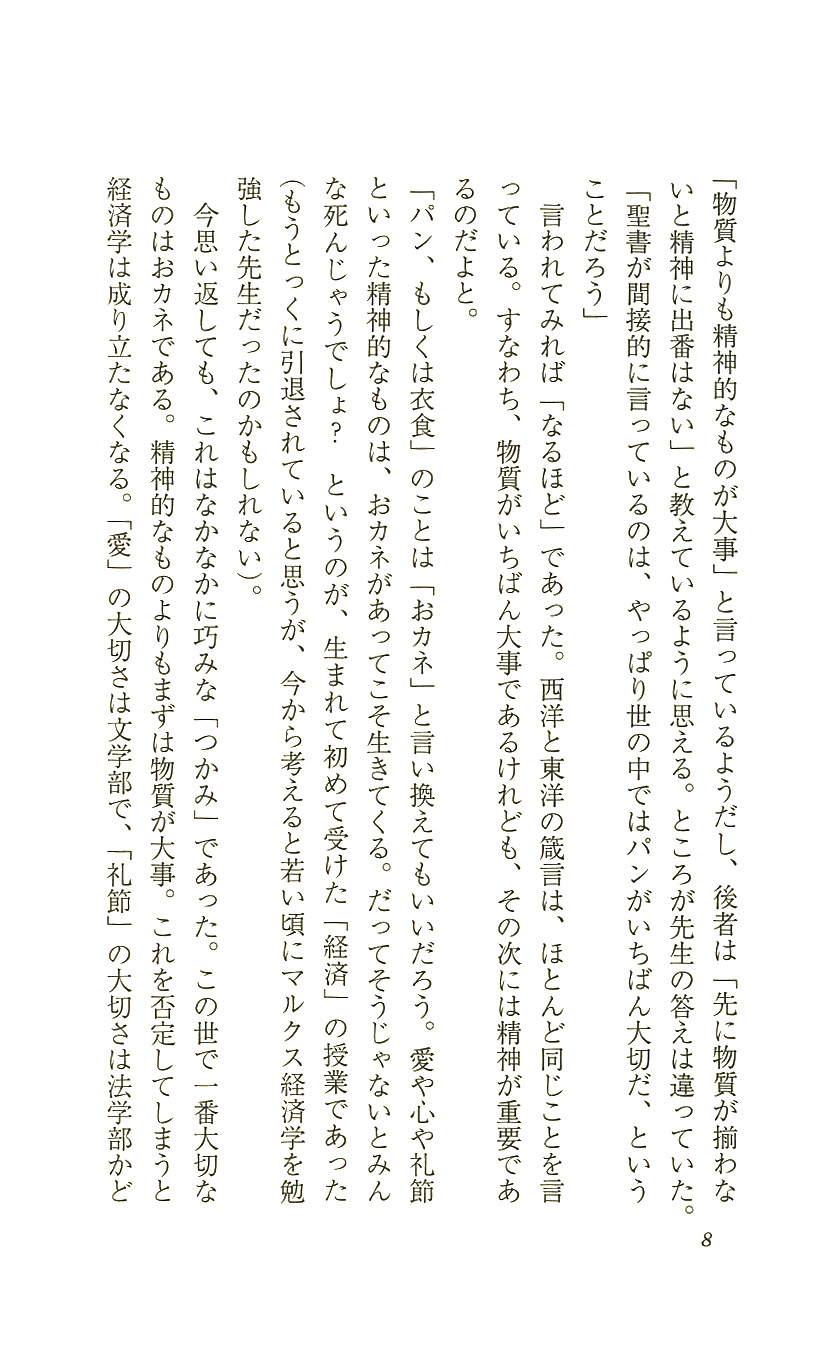 「物質よりも精神的なものが大事」と言っているようだし、後者は「先に物質が揃わな
いと精神に出番はない」と教えているように思える。ところが先生の答えは違っていた。
「聖書が間接的に言っているのは、やっぱり世の中ではパンがいちばん大切だ、という
ことだろう」
言われてみれば「なるほど」であった。西洋と東洋の箴言は、ほとんど同じことを言
っている。すなわち、物質がいちばん大事であるけれども、その次には精神が重要であ
るのだよと。
「パン、もしくは衣食」のことは「おカネ」と言い換えてもいいだろう。愛や心や礼節
といった精神的なものは、おカネがあってこそ生きてくる。だってそうじゃないとみん
な死んじゃうでしょ?　というのが、生まれて初めて受けた「経済」の授業であった
(もうとっくに引退されていると思うが、今から考えると若い頃にマルクス経済学を勉
強した先生だったのかもしれない)。
今思い返しても、これはなかなかに巧みな「つかみ」であった。この世で一番大切な
ものはおカネである。精神的なものよりもまずは物質が大事。これを否定してしまうと
経済学は成り立たなくなる。「愛」の大切さは文学部で、「礼節」の大切さは法学部かど
8